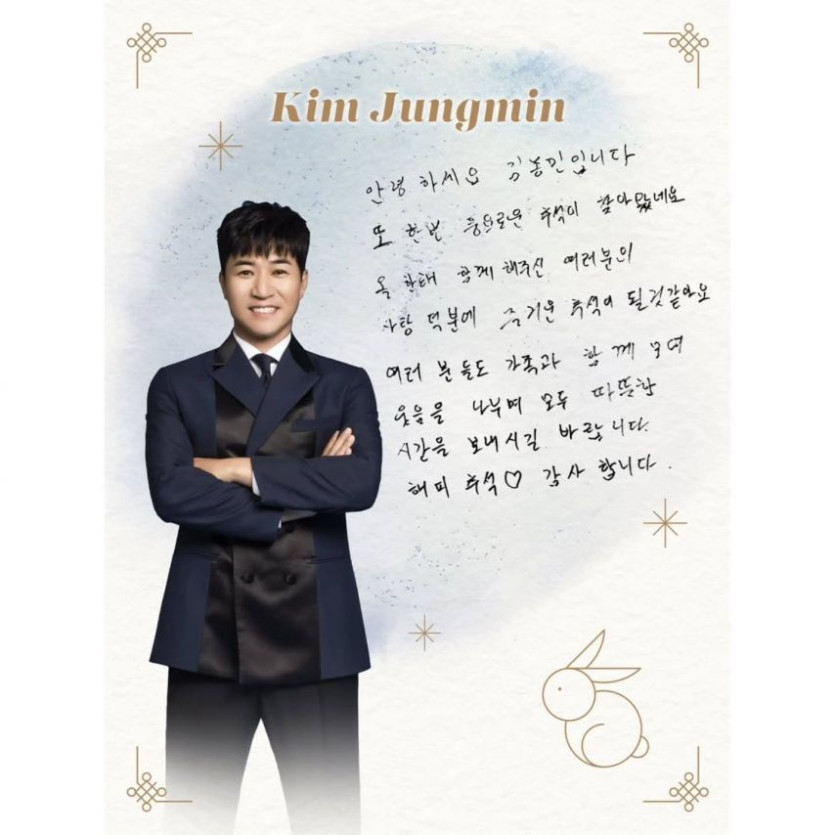 Kim Jungmin
안녕하세요 김종민입니다
또 한번 풍요로운 추석이 찾아왔네요
올 한해 함께 해주신 여러분의
사랑 덕분에 즐거운 추석이 될것같아요
여러분들도 가족과 함께 모여
웃음을 나누며 모두 따뜻한
시간을 보내시길 바랍니다.
해피 추석♡ 감사합니다.